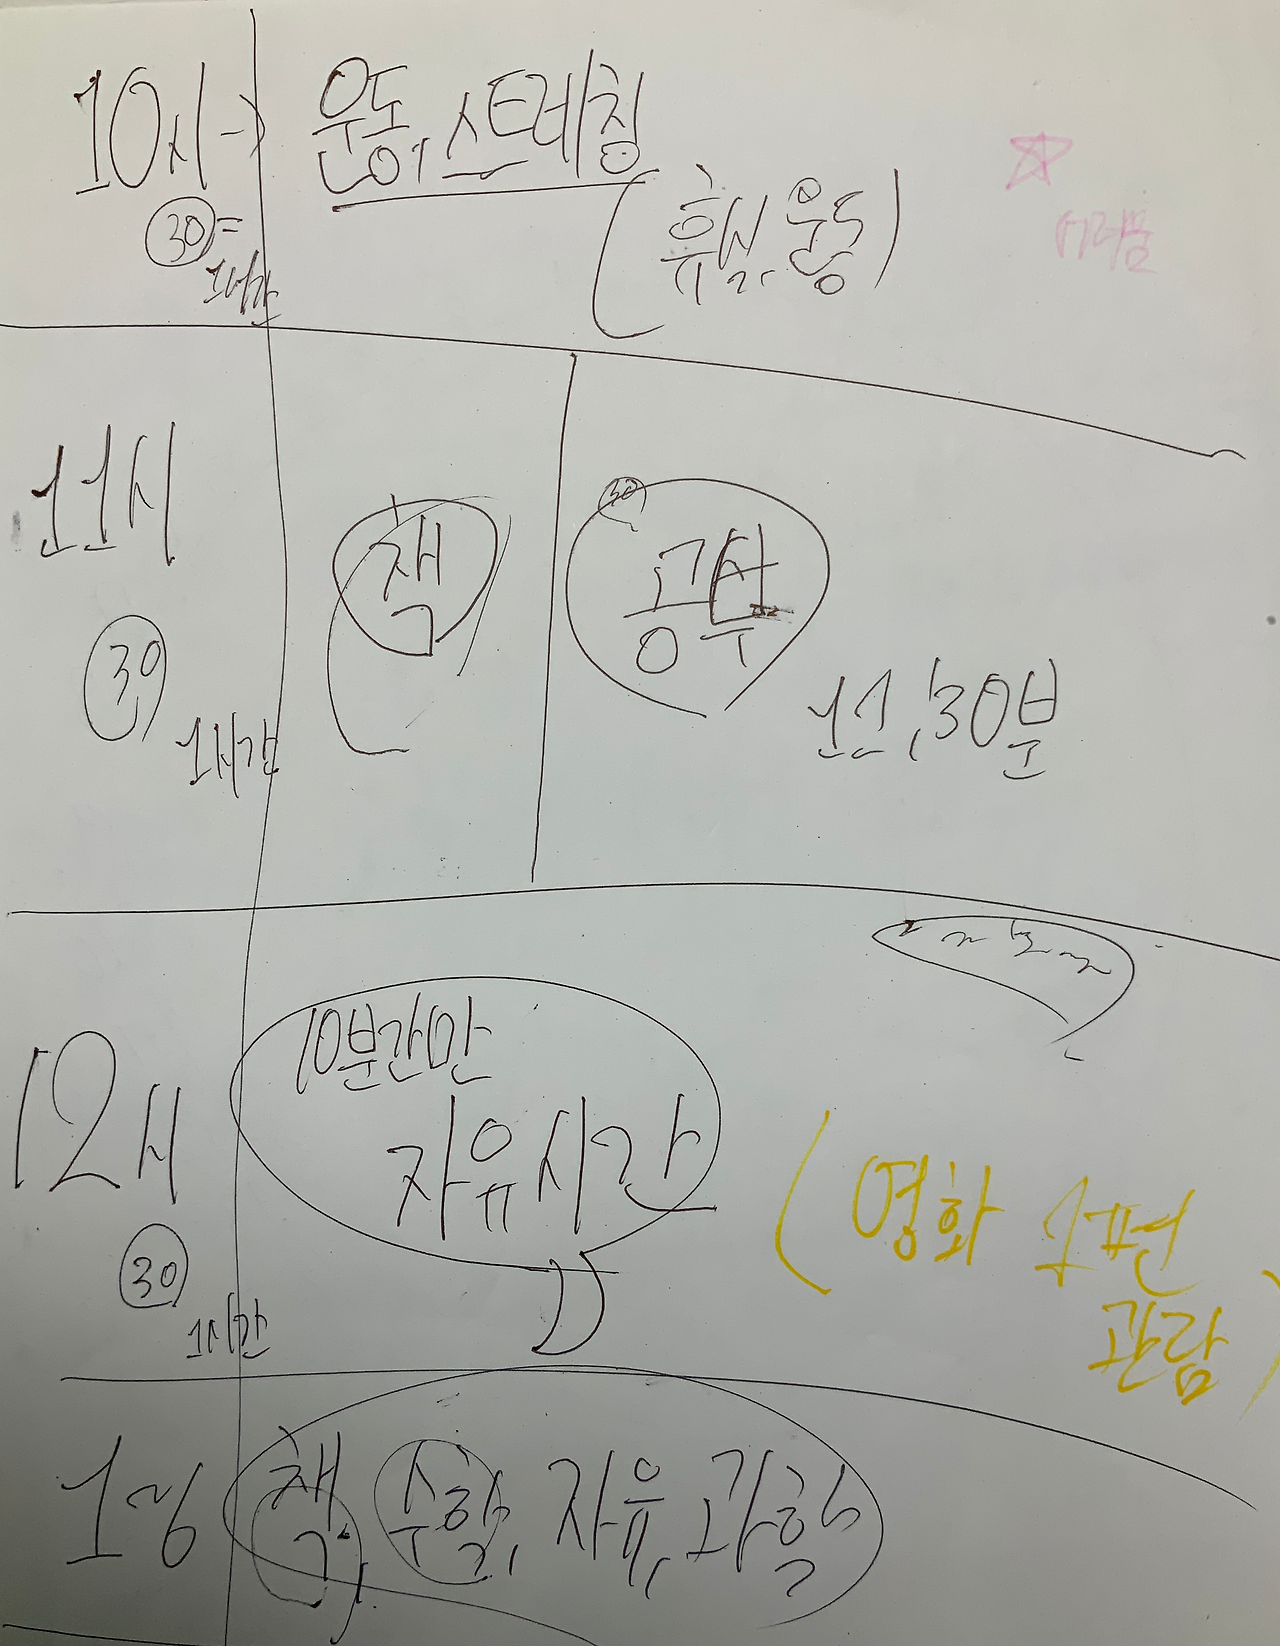 10시→ 운동, 스트레칭
30=
1시간
(휴식, 운동)
11시 책 30 공부
30
1시간
11,30분
12시 10분간만
자유시간
30
1시간
(영화 1편
관람)
1~6 책, 수학, 자유, 과학